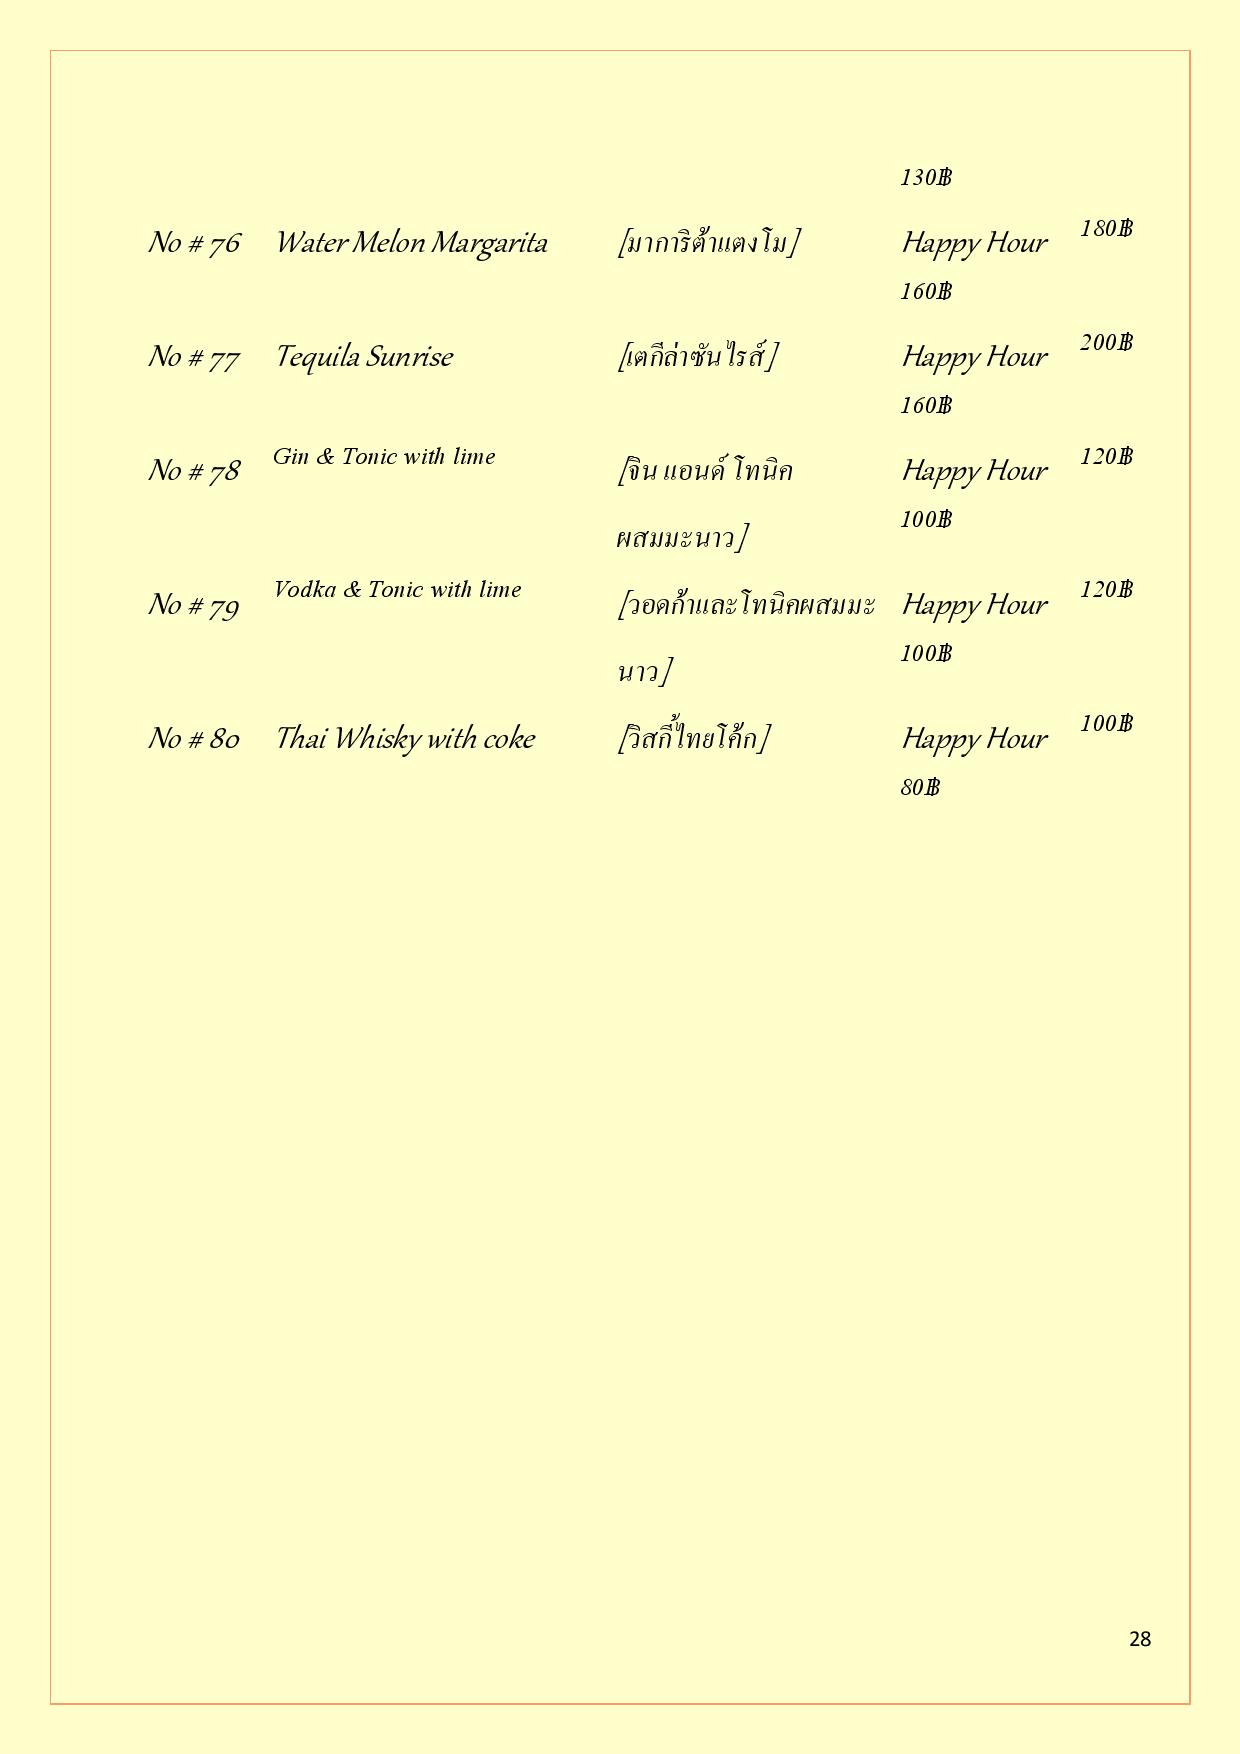 130฿
No # 76 Water Melon Margarita [มาการิต้าแตงโม] Happy Hour 180฿
160฿
No # 77 Tequila Sunrise [เตกีล่าซันไรส์] Happy Hour 200฿
160฿
No # 78 Gin & Tonic with lime [จิน แอนด์ โทนิค Happy Hour 120฿
100฿
ผสมมะนาว]
No # 79 Vodka & Tonic with lime [วอดก้าและโทนิคผสมมะ Happy Hour 120฿
100฿
นาว]
No # 80 Thai Whisky with coke [วิสกี้ไทยโค้ก] Happy Hour 100฿
80฿
28